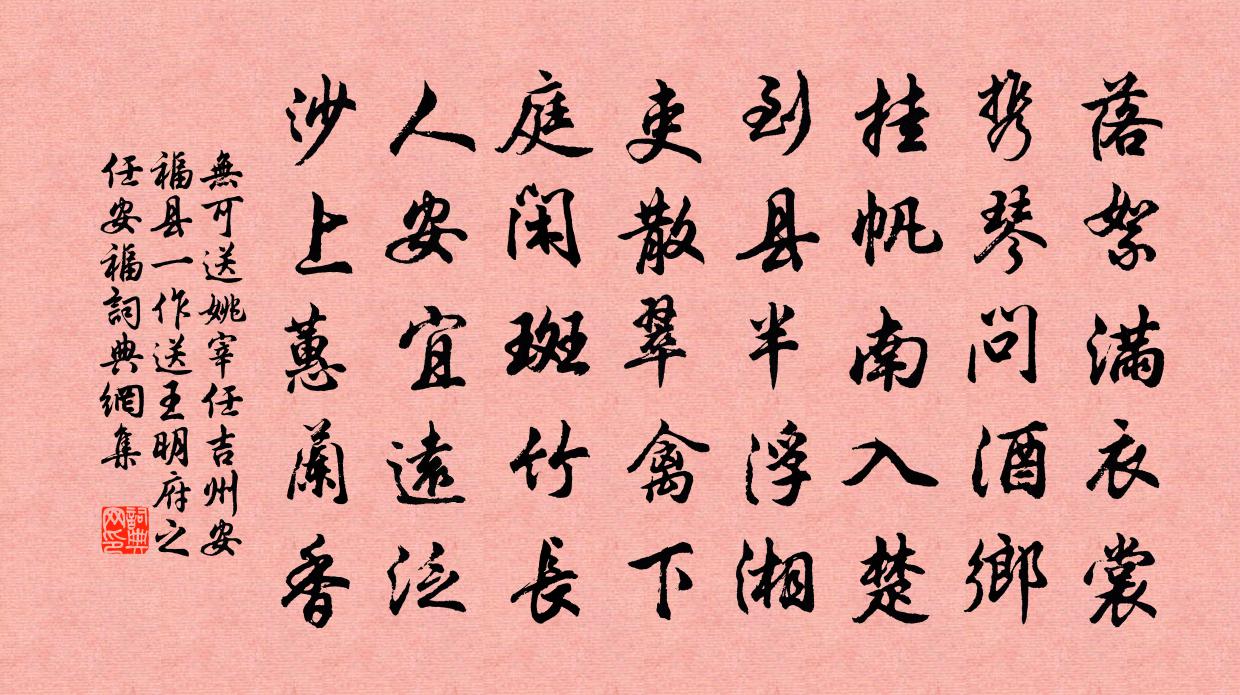 落絮满衣裳
携琴问酒鄉
挂帆南入楚
到县半浮湘
吏散翠禽下
庭闲斑竹長
人安宜遠泛
沙上蕙蘭香
無可送姚宰任吉州安
福县一作送王明府之
任安福詞典網集
詞典
网印